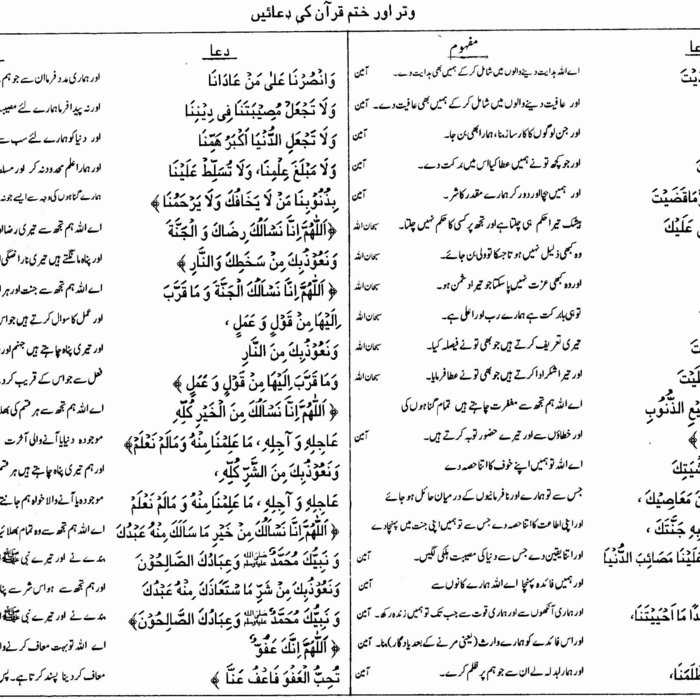 وتر اور ختم قرآن کی دعائیں
عا
مفہوم
یْتَ
اے اللہ ہدایت دینے والوں میں شامل کر کے ہمیں بھی ہدایت دے۔ آمین
اور عافیت دینے والوں میں شامل کر کے ہمیں بھی عافیت دے۔ آمین
اور جن لوگوں کا کارساز بنا، ہمارا بھی بن جا۔ آمین
اور جو کچھ تو نے ہمیں عطا کیا اس میں برکت دے۔ آمین
مَاقَضَیْتَ
اور ہمیں بچا اور دور کر ہمارے مقدر کا شر۔ آمین
عَلَیْکَ
بیشک تیرا حکم ہی چلتا ہے اور تجھ پر کسی کا حکم نہیں چلتا۔ سبحان اللہ
وہ کبھی ذلیل نہیں ہوتا جسکا تو ولی بن جائے۔ سبحان اللہ
اور وہ کبھی عزت نہیں پا سکتا جو تیرا دشمن ہو۔ سبحان اللہ
تو ہی بابرکت ہے ہمارے رب اور اعلی ہے۔ سبحان اللہ
تیری تعریف کرتے ہیں جو بھی تو نے فیصلہ کیا۔ سبحان اللہ
اور تیرا شکر ادا کرتے ہیں جو بھی تو نے عطا فرمایا۔ سبحان اللہ
الذُّنُوبِ
اے اللہ ہم تجھ سے مغفرت چاہتے ہیں تمام گناہوں کی
اور خطاؤں سے اور تیرے حضور توبہ کرتے ہیں۔ آمین
اے اللہ تو ہمیں اپنے خوف کا اتنا حصہ دے
مَعَاصِیْکَ،
جس سے تو ہمارے اور نافرمانیوں کے درمیان حائل ہو جائے
جَنَّتَکَ،
اور اپنی اطاعت کا اتنا حصہ دے جس سے تو ہمیں اپنی جنت میں پہنچا دے
عَلَیْنَا مَصَائِبَ الدُّنْیَا
اور اتنا یقین دے جس سے دنیا کی مصیبت ہلکی لگیں۔ آمین
اور ہمیں فائدہ پہنچا اے اللہ ہمارے کانوں سے آمین
مَا اَحْیَیْتَنَا،
اور ہماری آنکھوں سے اور ہماری قوت سے جب تک تو ہمیں زندہ رکھ۔ آمین
اور اس فائدے کو ہمارے وارث (یعنی مرنے کے بعد یادگار) بنا۔ آمین
اور ہمارا بدلہ لے ان سے جو ہم پر ظلم کرے۔ آمین
دعا
وَانْصُرْنَا عَلٰی مَنْ عَادَانَا
وَلَا تَجْعَلْ مُصِیْبَتَنَا فِی دِیْنِنَا
وَلَا تَجْعَلِ الدُّنْیَا اَکْبَرُ هَمِّنَا
وَلَا مَبْلَغَ عِلْمِنَا، وَلَا تُسَلِّطْ عَلَیْنَا
بِذُنُوْبِنَا مَنْ لَا یَخَافُکَ وَلَا یَرْحَمُنَا ﴾
﴿اَللّٰهُمَّ اِنَّا نَسْاَلُکَ رِضَاکَ وَ الْجَنَّةَ
وَنَعُوْذُبِکَ مِنْ سَخَطِکَ وَالنَّارِ ﴾
﴿ اَللّٰهُمَّ اِنَّا نَسْاَلُکَ الْجَنَّةَ وَ مَا قَرَّبَ
اِلَیْهَا مِنْ قَوْلٍ وَ عَمَلٍ ،
وَنَعُوْذُبِکَ مِنَ النَّارِ
وَمَا قَرَّبَ اِلَیْهَا مِنْ قَوْلٍ وَ عَمَلٍ ﴾
﴿ اَللّٰهُمَّ اِنَّا نَسْاَلُکَ مِنَ الْخَیْرِ کُلِّهِ
عَاجِلِهِ وَ آجِلِهِ ، مَا عَلِمْنَا مِنْهُ وَمَالَمْ نَعْلَمْ﴾
وَنَعُوْذُبِکَ مِنَ الشَّرِّ کُلِّهِ ،
عَاجِلِهِ وَ آجِلِهِ ، مَا عَلِمْنَا مِنْهُ وَ مَالَمْ نَعْلَمْ
﴿اَللّٰهُمَّ اِنَّا نَسْاَلُکَ مِنْ خَیْرِ مَا سَاَلَکَ مِنْهُ عَبْدُکَ
وَ نَبِیُّکَ مُحَمَّدٌ ﷺ وَعِبَادُکَ الصَّالِحُوْنَ
وَنَعُوْذُبِکَ مِنْ شَرِّ مَا سْتَعَاذَکَ مِنْهُ عَبْدُکَ
وَ نَبِیُّکَ مُحَمَّدٌ ﷺ وَعِبَادُکَ الصَّالِحُوْنَ﴾
﴿ اَللّٰهُمَّ اِنَّکَ عَفُوٌّ
تُحِبُّ الْعَفْوَ فَاعْفُ عَنَّا ﴾
اور ہماری مدد فرما ان سے جو ہم
اور نہ پیدا فرما ہمارے لئے مصیبت
اور دنیا کو ہمارے لئے سب سے
اور ہمارا علم محدود نہ کر اور
ہمارے گناہوں کی وجہ سے ایسے جو نہ
اے اللہ ہم تجھ سے تیری رضا اور
اور پناہ مانگتے ہیں تیری ناراضگی
اے اللہ ہم تجھ سے جنت اور ہر
اور عمل کا سوال کرتے ہیں جو اس
اور تیری پناہ چاہتے ہیں جہنم اور
فعل سے جو اس کے قریب کر دے
اے اللہ ہم تجھ سے ہر قسم کی بھلائی
موجودہ دنیا یا آنے والی آخرت
اور ہم تیری پناہ چاہتے ہیں ہر قسم
موجودہ یا آنے والا خواہ ہم جانتے
اے اللہ ہم تجھ سے وہ تمام بھلائیاں
بندے نے اور تیرے نبی ﷺ
اور ہم تجھ سے ہو اس شر سے پناہ
بندے نے اور تیرے نبی ﷺ
اے اللہ تو بہت معاف کرنے والا
معاف کر دینا پسند کرتا ہے۔ پس